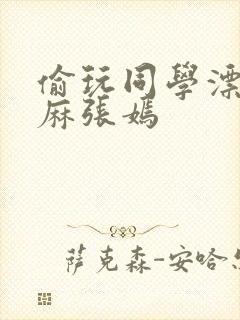 偷玩同學漂
麻張媽
萨克森-安哈